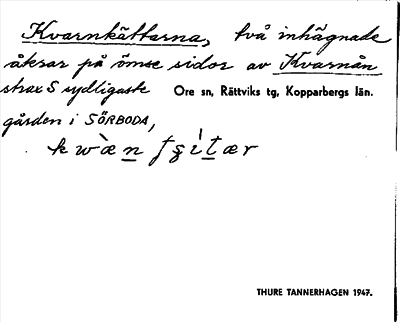 Kvarnkättarna, två inhägnade
åkrar på ömse sidor av Kvarnån
strax S sydligaste Ore sn, Rättviks tg, Kopparbergs län.
gården i SÖRBODA,
THURE TANNERHAGEN 1947.